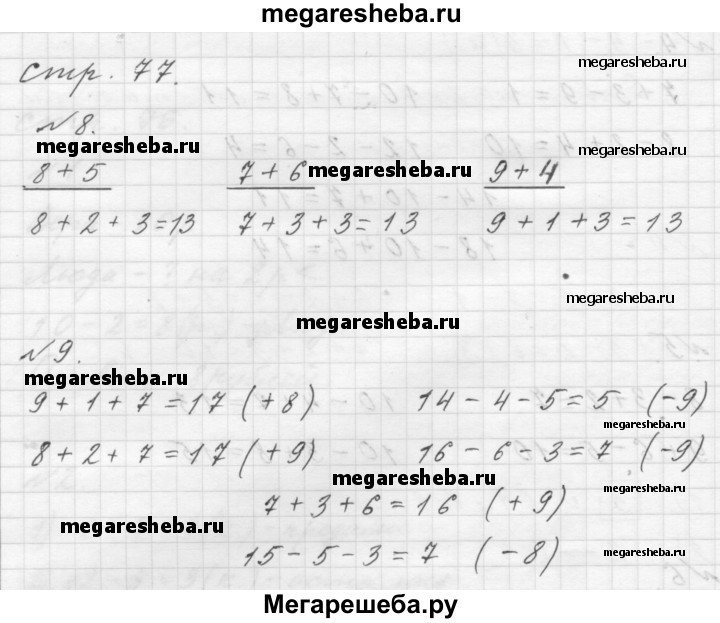 megaresheba.ru
стр. 77.
megaresheba.ru
№ 8.
megaresheba.ru
megaresheba.ru
8 + 5 7 + 6 9 + 4
megaresheba.ru
8 + 2 + 3 = 13 7 + 3 + 3 = 13 9 + 1 + 3 = 13
megaresheba.ru
megaresheba.ru
№ 9.
megaresheba.ru
9 + 1 + 7 = 17 (+8) 14 - 4 - 5 = 5 (-9)
megaresheba.ru
8 + 2 + 7 = 17 (+9) 16 - 6 - 3 = 7 (-9)
megaresheba.ru
7 + 3 + 6 = 16 (+9)
megaresheba.ru
15 - 5 - 3 = 7 (-8)
megaresheba.ru
Мегарешеба.ру